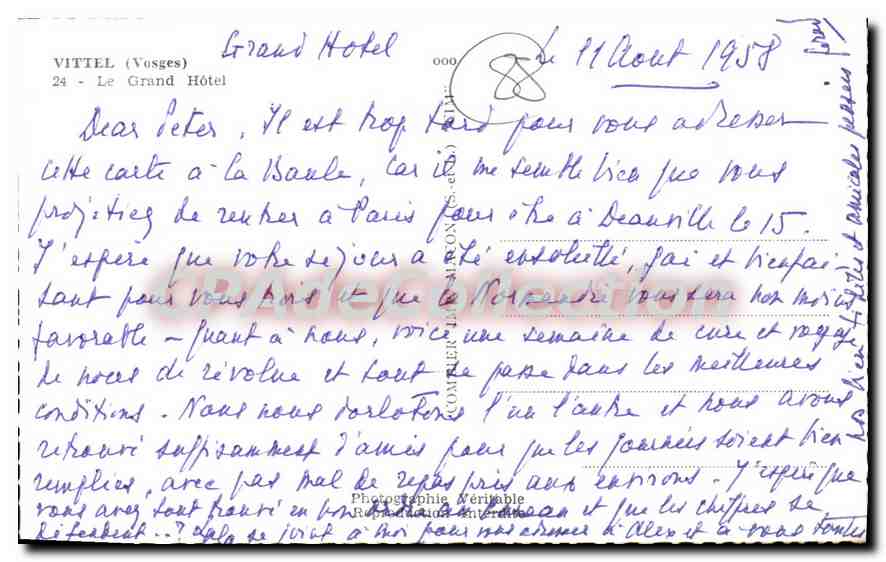 Grand Hotel
le 11 Aout 1958
VITTEL (Vosges)
24 - Le Grand Hôtel
Dear Peter, Il est trop tard pour vous adresser
cette carte à la Baule, car il me semble bien que vous
projetiez de rentrer à Paris pour être à Deauville le 15.
J'espère que votre séjour a été ensoleillé, gai et bienfai-
sant pour vous trois et que la Normandie vous sera non moins
favorable - quant à nous, voici une semaine de cure et voyage
de noces de révolue et tout se passe dans les meilleures
conditions. Nous nous dorlotons l'un l'autre et nous avons
retrouvé suffisamment d'amis pour que les journées soient bien
remplies, avec pas mal de repas pris aux environs. J'espère que
vous avez tout trouvé en bon et que les chiffres se
défendent..? se joint à moi pour vous à Alex et à vous toutes
nos bien et amicales pensées
COMBIER IMP. MACON (S.-et-L.) "CIM"
Photographie Véritable
Reproduction Interdite
CPAdeCollection